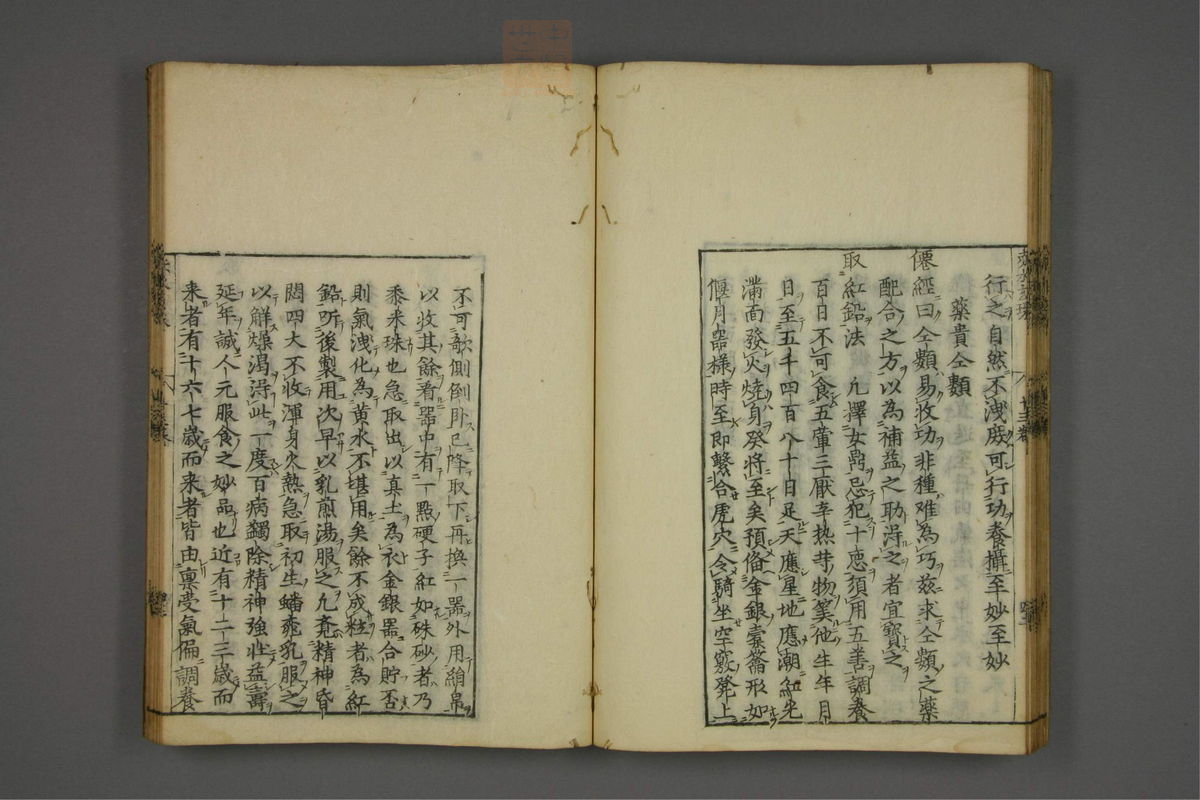 行之自然不洩庶可行功養攝至妙至妙
藥貴仝類
僊經曰仝類易收功非種难為巧兹求仝類之藥
配合之方以為補益之助淂之者宜寳之
取紅鉛法 凢擇女鼎忌犯十悪須用五善調養
百日不可食五葷三厭辛热䓁物筭他生年月
日至五千四百八十日足天應星地應潮紅光
滿面發火燒身癸將至矣預俻金銀橐籥形如
偃月器樣時至即繫合虎穴令騎坐空竅凳上
不可欹側倒卧已降取下再換一器外用絹帛
以收其餘看器中有一點硬子紅如硃砂者乃
黍米珠也急取出以真土為衣金銀器合貯否
則氣洩化為黄水不堪用矣餘不成粒者為紅
鉛听後製用次早以乳煎湯服之凢覔精神昏
悶四大不收渾身火熱急取初生蟠龍乳服之
以解燥渴淂此一度百病蠲除精神強壯益壽
延年誠人元服食之妙品也近有十二三歳而
来者有十六七歳而来者皆由禀受氣偏調養